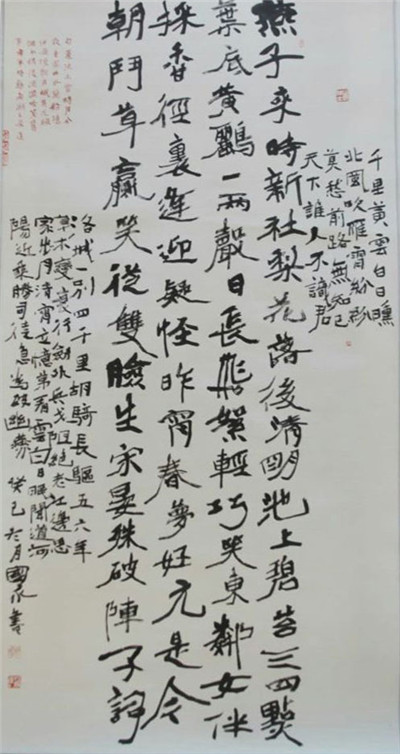 千里黄雲白日曛
北風吹雁雪紛紛
莫愁前路無知己
天下誰人不識君
燕子來時新社梨花落後清明池上碧苔三四點
葉底黄鸝一兩聲日長飛絮輕巧笑東鄰女伴
採香徑裏逢迎疑怪昨宵春夢好元是今
朝鬥草贏笑從雙臉生宋晏殊破陣子詞
洛城一別四千里胡騎長驅五六年
草木變衰行劍外兵戈阻絕老江邊思
家步月清宵立憶弟看雲白日眠聞道河
陽近乘勝司徒急為破幽燕 癸巳 月國 書